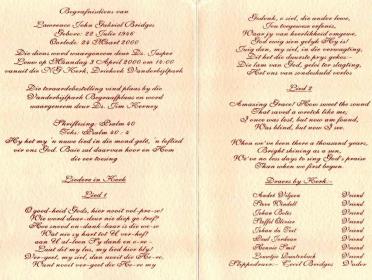 Begrafnisdiens van
Lawrence John Gabriel Bridges
Gebore: 22 Julie 1946
Oorlede: 24 Maart 2000
Die diens word waargeneem deur Ds. Jasper
Louw op Maandag 3 April 2000 om 14:00
vanuit die N G Kerk, Driehoek Vanderbijlpark
Die teraardebestelling vind plaas by die
Vanderbijlpark Begraafplaas en word
waargeneem deur Ds. Tim
Skriflesing: Psalm 40
Teks: Psalm 40 : 4
Hy het my 'n nuwe lied in die mond gelê, 'n loflied
vir ons God. Baie sal daarvan hoor en Hom
die eer toesing
Liedere in Kerk
Lied 1
O goed-heid God, hier nooit vol-pre-se!
Wie word deur dit diep ge-tref?
Hoe snood on-dank-baar is die
Wat nie sy hart tot U ver-hef?
aan U al-leen Sy dank en
Laat dit my lus, my lied hier bly!
Ver-geet, my siel, dan nooit die He-re,
Want nooit ver-geet die He-re my
Gedenk, o siel, die
When jy van heerlikheid omgewe,
God ewig sien gelyk Hy is!
Juig dan, my siel, in die verwagting,
Dit het die duurste prys gekos:
Die Lam van God, gelei ter slagting,
Het ons van sondeskuld verlos
Lied 2
Amazing Grace! How sweet the sound
That saved a wretch like me,
I once was lost, but now am found,
Was blind, but now I see.
When we've been there a thousand years,
Bright shining as a sun,
We've no less days to sing God's praise
Than when first began.
Draers by Kerk:-
André Viljoen Vriend
Steve Windell Vriend
Johan Botes Vriend
Steffel Olivier Vriend
Johan Vriend
Vriend
Hannes Smit Vriend
Vriend
Slippedraer:- Cecil Bridges Vader